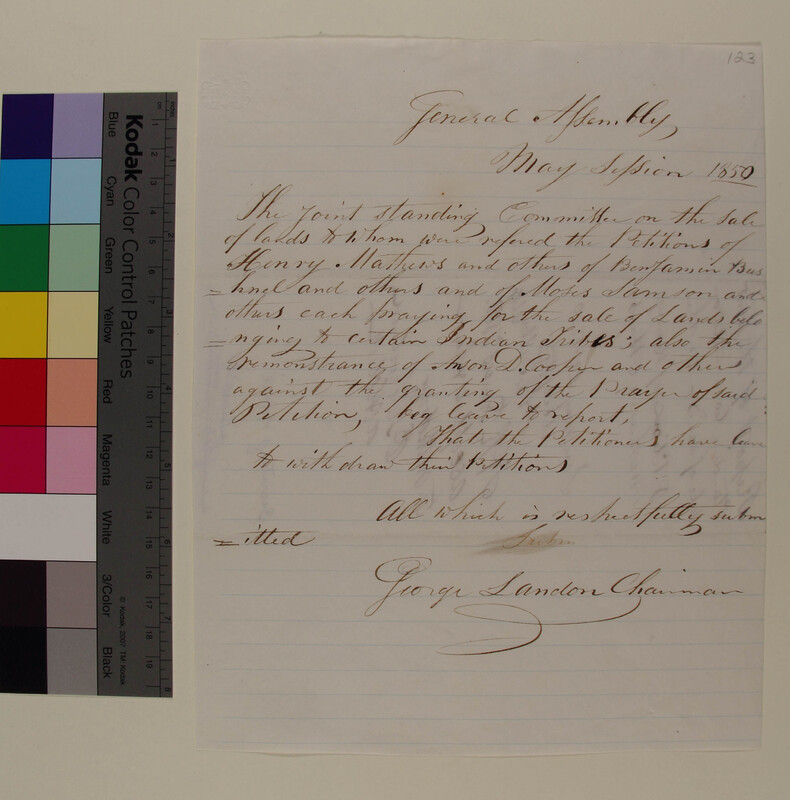 123
General Assembly,
May Session 1850
The joint standing Committee on the sale
of lands to whom were refered the Petitions of
Henry Mathews and others of Benjamin Bus
=hnel and others and of Moses Samson and
others each praying for the sale of Lands belo
=nging to certain Indian Tribes; also the
remonstrance of Anson D. Cooper and other
against the granting of the Prayer of said
Petition, beg leave to report,
That the Petitioners have leave
to with draw their Petitions
All which is respectfully subm
=itted
Subm
George Landon Chairman
Kodak Color Control Patches
Blue Cyan Green Yellow Red Magenta White 3/Color Black
© Kodak, 2007 TM: Kodak
1 2 3 4 5 6 7 8 9 10 11 12 13 14 15 16 17 18 19